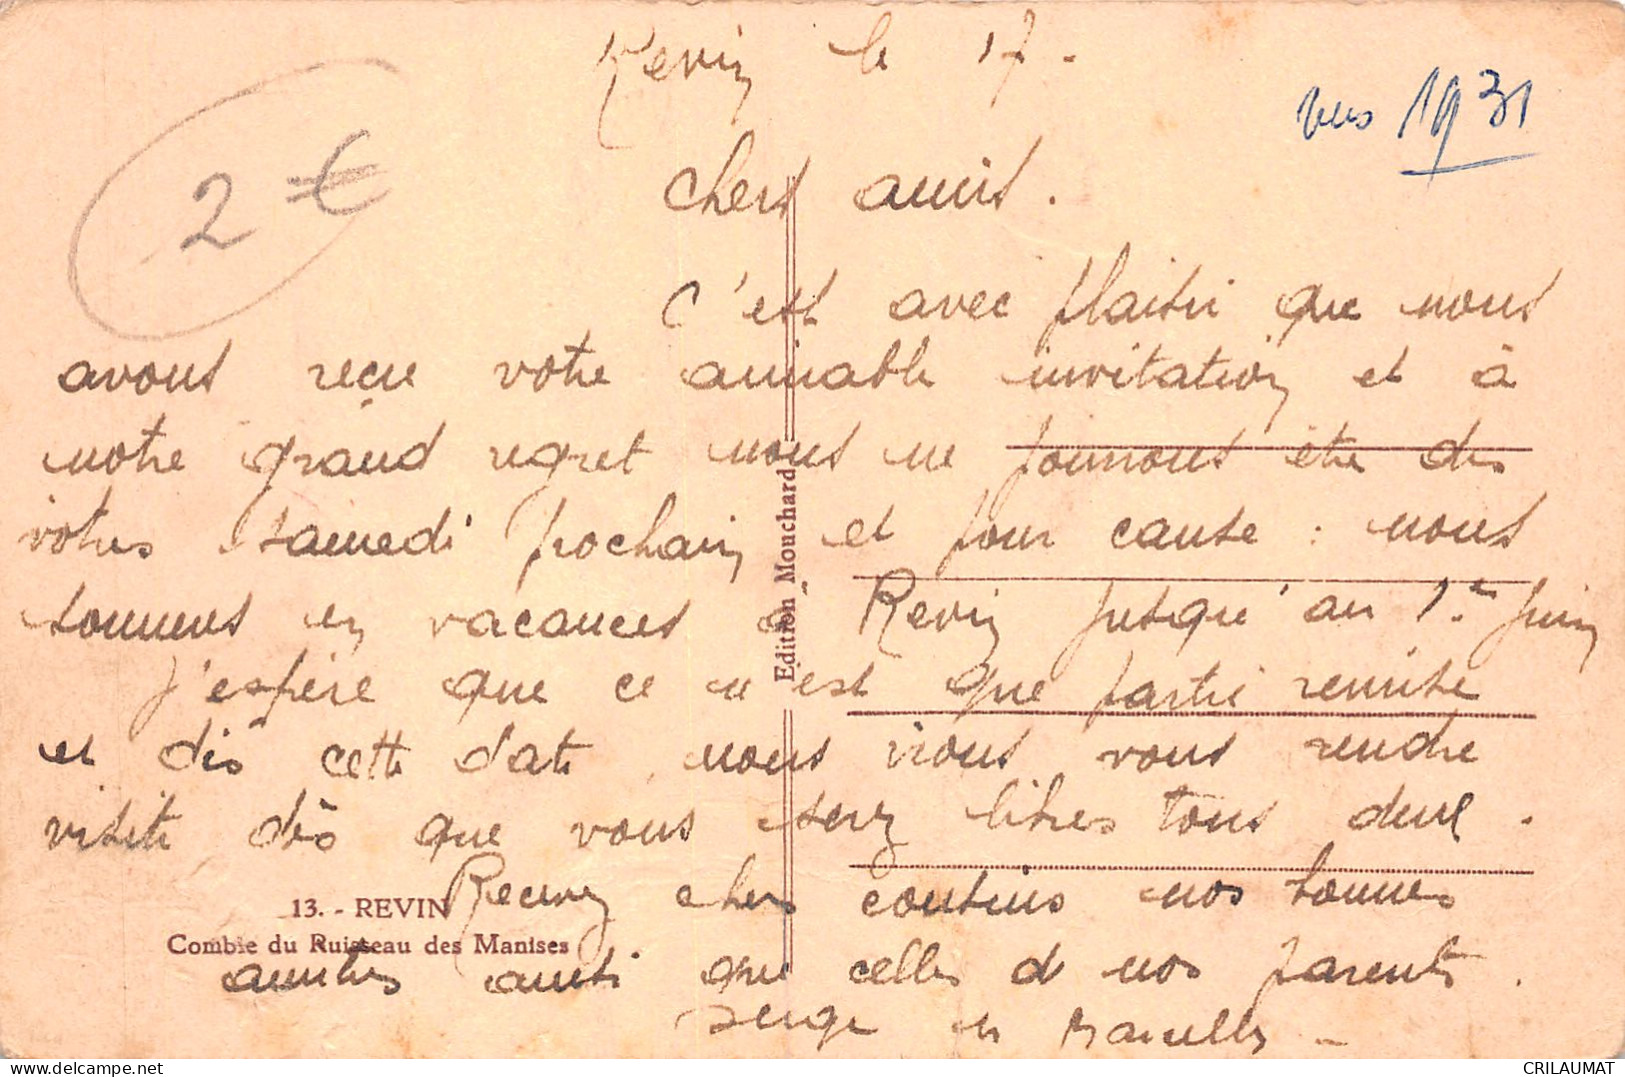 Revin le 17.
vers 1931
2 €
Chers amis.
C'est avec plaisir que nous
avons reçu votre aimable invitation et à
notre grand regret nous ne pourrons être des
votres samedi prochain et pour cause : nous
sommes en vacances à Revin jusqu'au 1er Juin
J'espère que ce n'est que partie remise
et dès cette date, nous irons vous rendre
visite dès que vous serez libres tous deux.
Recevez chers cousins nos bonnes
amitiés ainsi que celles de nos parents.
Serge et Marcelle
Edition Mouchard
13. - REVIN
Combie du Ruisseau des Manises
CRILAUMAT